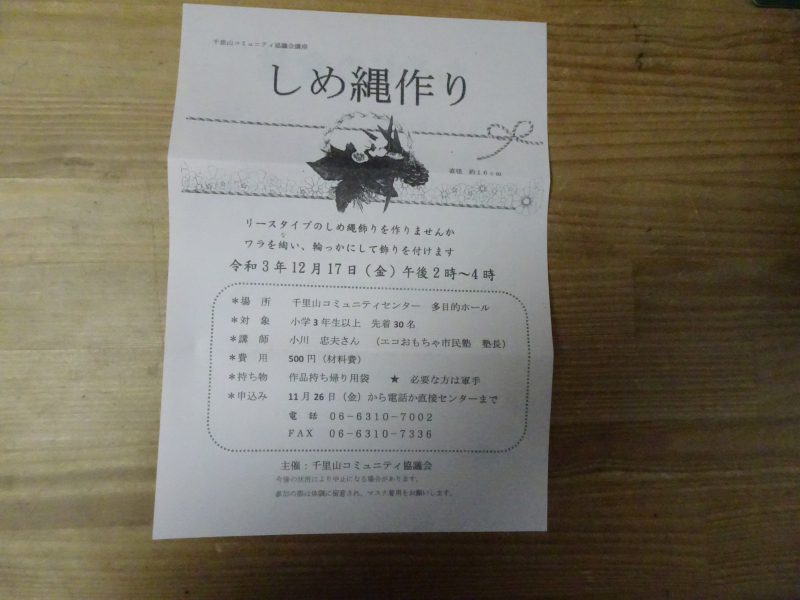 千里山コミュニティ協議会講座
しめ縄作り
直径 約16cm
リースタイプのしめ縄飾りを作りませんか
な
ワラを綯い、輪っかにして飾りを付けます
令和3年12月17日（金）午後2時～4時
＊場　所　千里山コミュニティセンター　多目的ホール
＊対　象　小学3年生以上　先着30名
＊講　師　小川　忠夫さん　（エコおもちゃ市民塾　塾長）
＊費　用　500円（材料費）
＊持ち物　作品持ち帰り用袋　★　必要な方は軍手
＊申込み　11月26日（金）から電話か直接センターまで
電　話　06－6310－7002
FAX　06－6310－7336
主催：千里山コミュニティ協議会
今後の状況により中止になる場合があります。
参加の際は体調に留意され、マスク着用をお願いします。